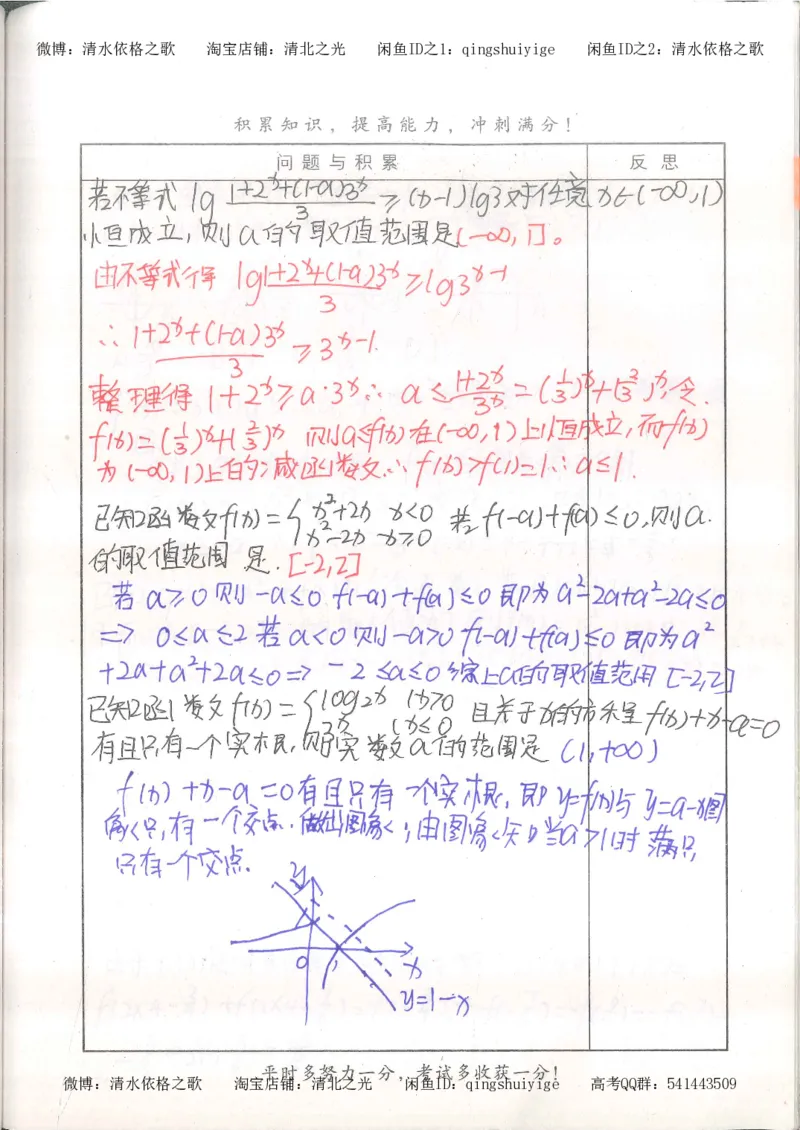 微博：清水依格之歌 淘宝店铺：清北之光 闲鱼ID之1：qingshuiyige 闲鱼ID之2：清水依格之歌
积累知识，提高能力，冲刺满分！
问题与积累 反思
若不等式 lg (1+2^x+(1-a)3^x)/3 ≥ (x-1)lg3 对任意 x∈(-∞,1)
恒成立，则a的取值范围是(-∞,1]。
由不等式得 lg (1+2^x+(1-a)3^x)/3 ≥ lg3^(x-1)
∴ (1+2^x+(1-a)3^x)/3 ≥ 3^(x-1).
整理得 1+2^x ≥ a·3^x ∴ a ≤ (1+2^x)/3^x = (1/3)^x+(2/3)^x, 令.
f(x)=(1/3)^x+(2/3)^x 则a≤f(x)在(-∞,1)上恒成立，而f(x)
为(-∞,1)上的减函数 ∴ f(x)>f(1)=1 ∴ a≤1.
已知函数f(x)={x²+2x x<0
x²-2x x≥0 若f(-a)+f(a)≤0,则a.
的取值范围是.[-2,2]
若a≥0则-a≤0 f(-a)+f(a)≤0即为a²-2a+a²-2a≤0
=> 0≤a≤2 若a<0则-a>0 f(-a)+f(a)≤0即为a²
+2a+a²+2a≤0=> -2≤a≤0 综上a的取值范围[-2,2]
已知函数f(x)={log2x (x>0
3^x (x≤0 且关于x的方程f(x)+x-a=0
有且只有一个实根，则实数a的范围是 (1,+∞)
f(x)+x-a=0有且只有一个实根，即y=f(x)与y=a-x图
象只有一个交点.做出图象；由图象知当a>1时满足
只有一个交点.
y
0 1 x
y=1-x
平时多努力一分，考试多收获一分！
微博：清水依格之歌 淘宝店铺：清北之光 闲鱼ID：qingshuiyige 高考QQ群：541443509